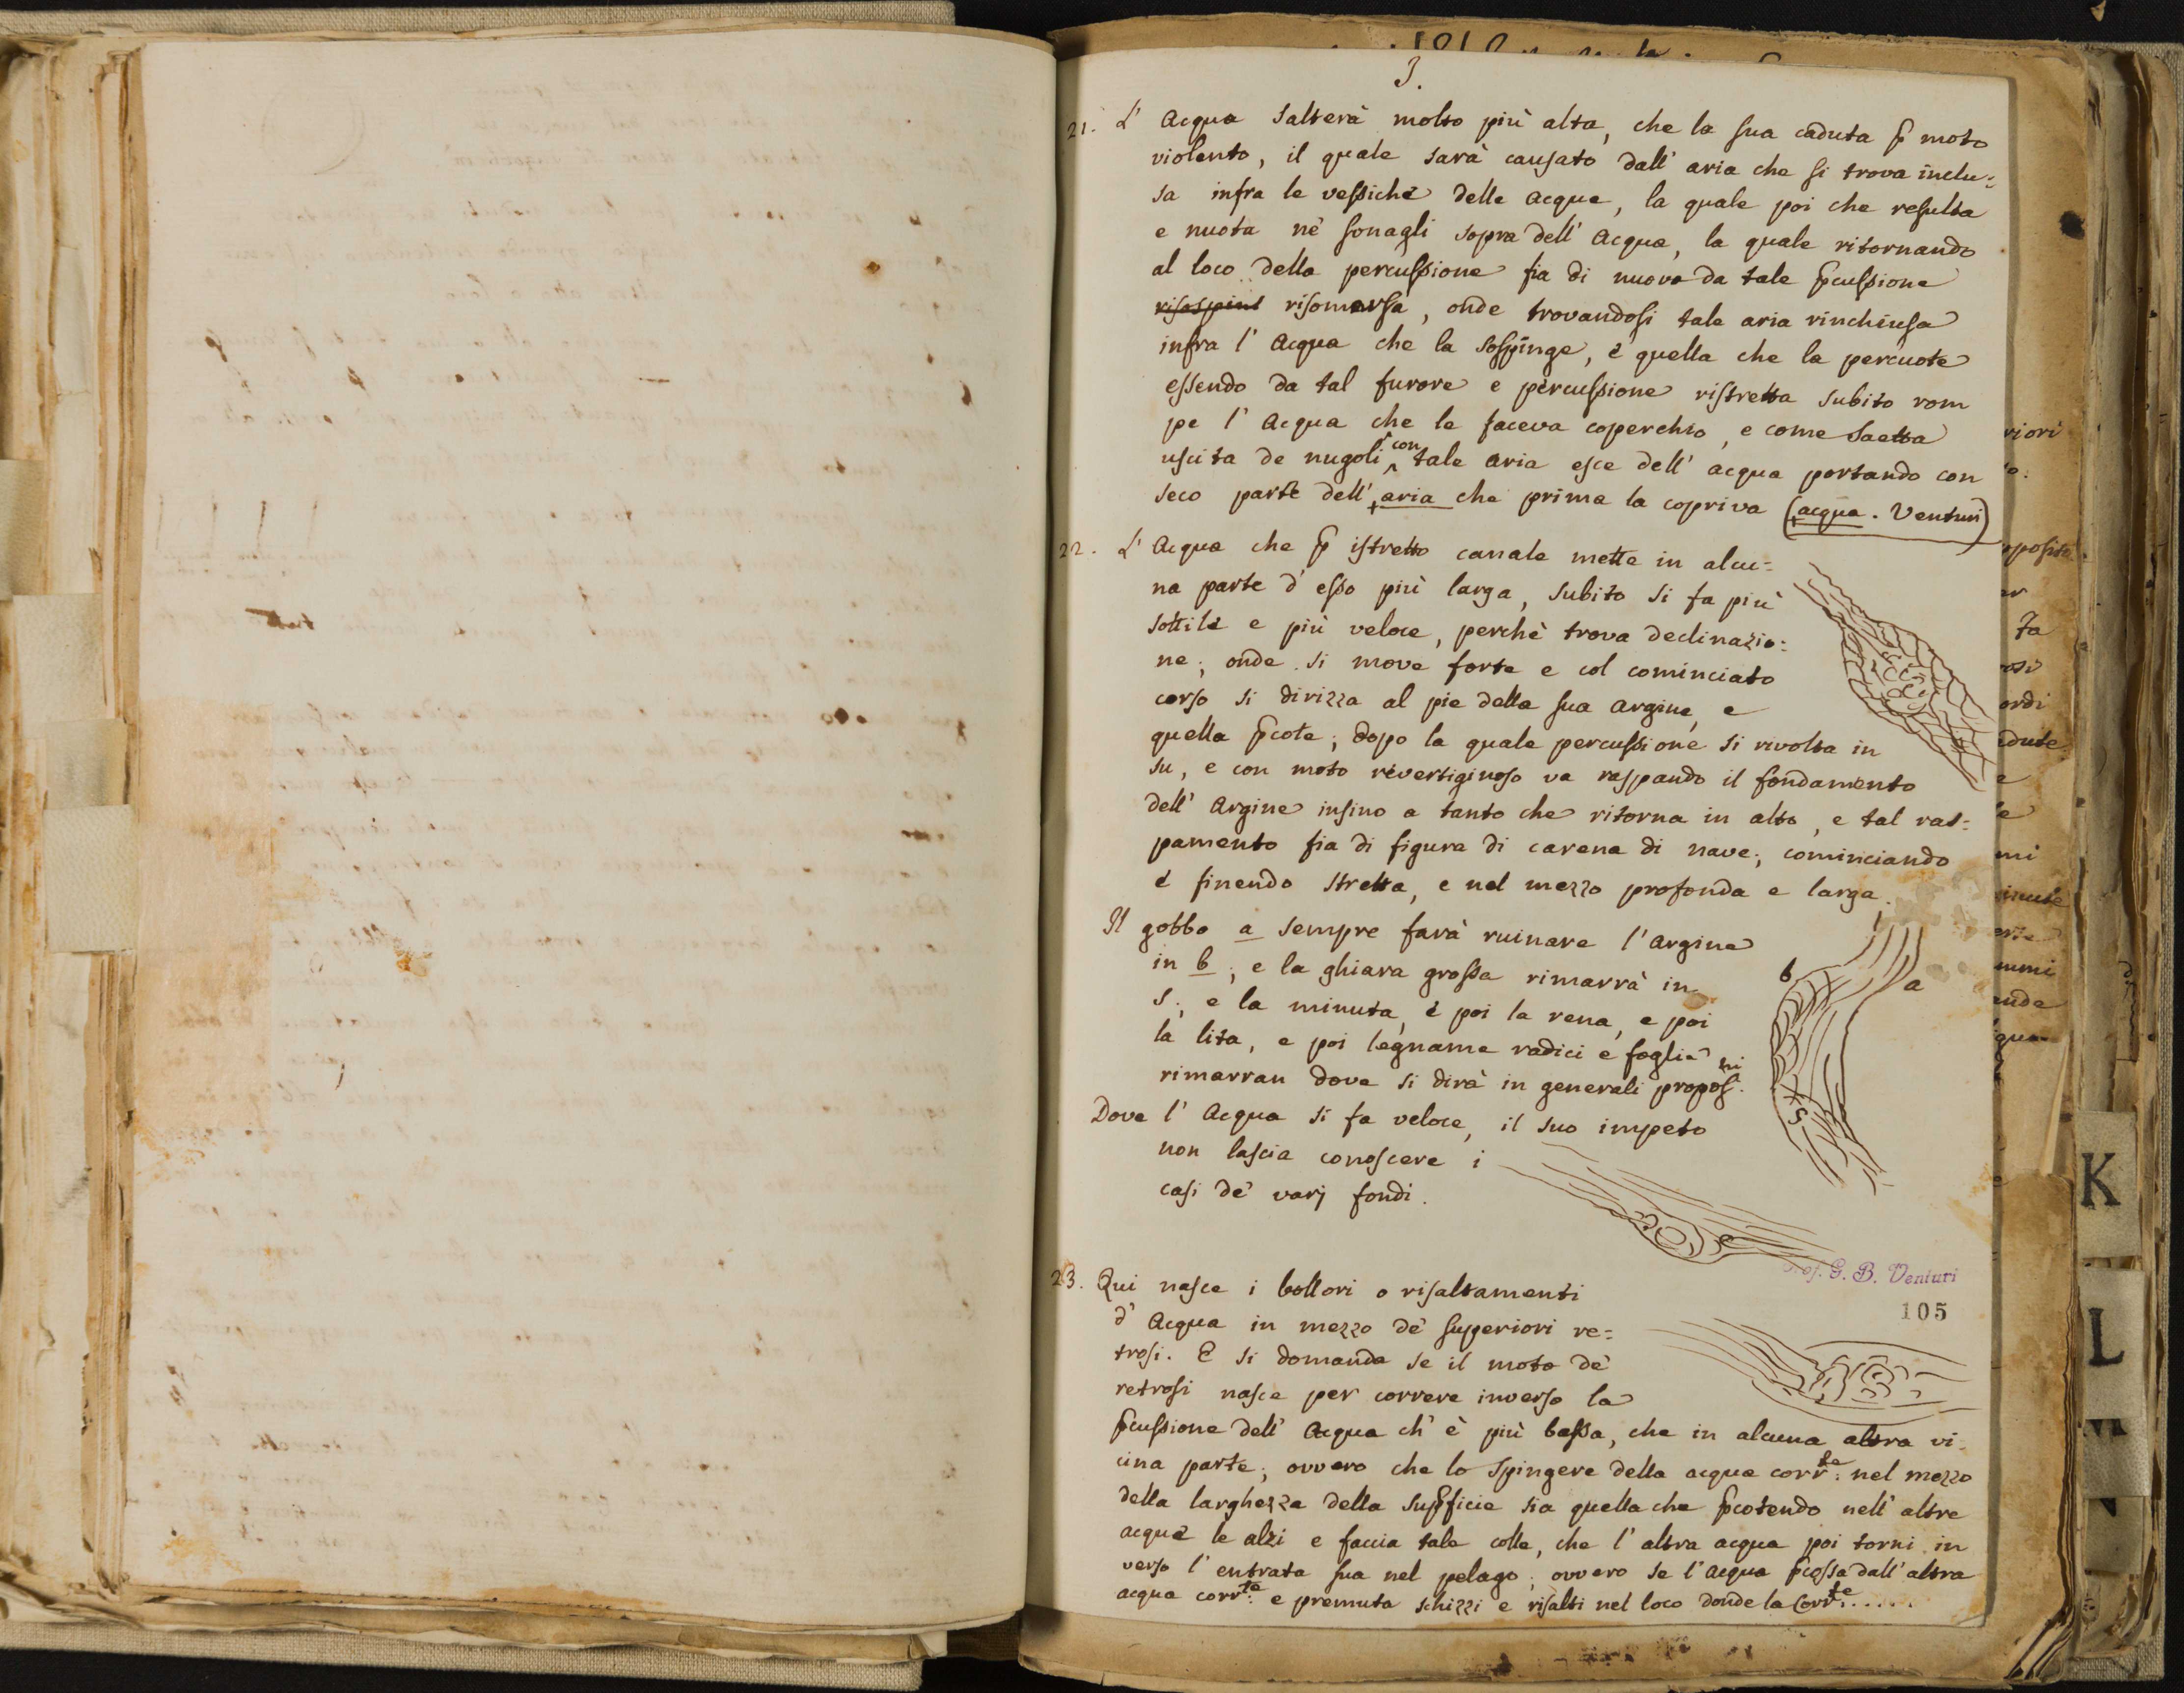 3.
21. L' Acqua salterà molto più alta, che la sua caduta p moto
violento, il quale sarà causato dall' aria che si trova inclu=
sa infra le vessiche delle acque, la quale poi che resulta
e nuota nè sonagli sopra dell' Acqua, la quale ritornando
al loco della percussione fia di nuovo da tale pcussione
risospint risomersa, onde trovandosi tale aria rinchiusa
infra l' Acqua che la sospinge, è quella che la percuote
essendo da tal furore e percussione ristretta subito rom
pe l' Acqua che le faceva coperchio, e come saetta
uscita de nugoli con tale aria esce dell' acqua portando con
seco parte dell' +aria che prima la copriva (+acqua. Venturi)
22. L' Acqua che p istretto canale mette in alcu=
na parte d' esso più larga, subito si fa più
sottile e più veloce, perchè trova declinazio=
ne; onde si move forte e col cominciato
corso si dirizza al pie della sua argine, e
quella pcote; dopo la quale percussione si rivolta in
su, e con moto revertiginoso va raspando il fondamento
dell' Argine insino a tanto che ritorna in alto, e tal ras=
pamento fia di figura di carena di nave; cominciando
e finendo stretta, e nel mezzo profonda e larga.
Il gobbo a sempre farà ruinare l' argine
in b; e la ghiara grossa rimarrà in
S; e la minuta, e poi la rena, e poi
la lita, e poi legname radici e foglie
rimarran dove si dirà in generali propos.
b
a
S
Dove l' Acqua si fa veloce, il suo impeto
non lascia conoscere i
casi de' varj fondi.
Prof. G. B. Venturi
105
23. Qui nasce i bollori o risaltamenti
d' Acqua in mezzo de' superiori re=
trosi. E si domanda se il moto de'
retrosi nasce per correre inverso la
pcussione dell' Acqua ch' è più bassa, che in alcuna altra vi=
cina parte; ovvero che lo spingere della acqua corr.te nel mezzo
della larghezza della supficie sia quella che pcotendo nell' altre
acque le alzi e faccia tale colle, che l' altra acqua poi torni in
verso l' entrata sua nel pelago; ovvero se l' acqua pcossa dall' altra
acqua corr.te e premuta schizzi e risalti nel loco donde la Corr.te .....
riori
opposite
fa
ordi
cadute
e
mi
minute
K
L